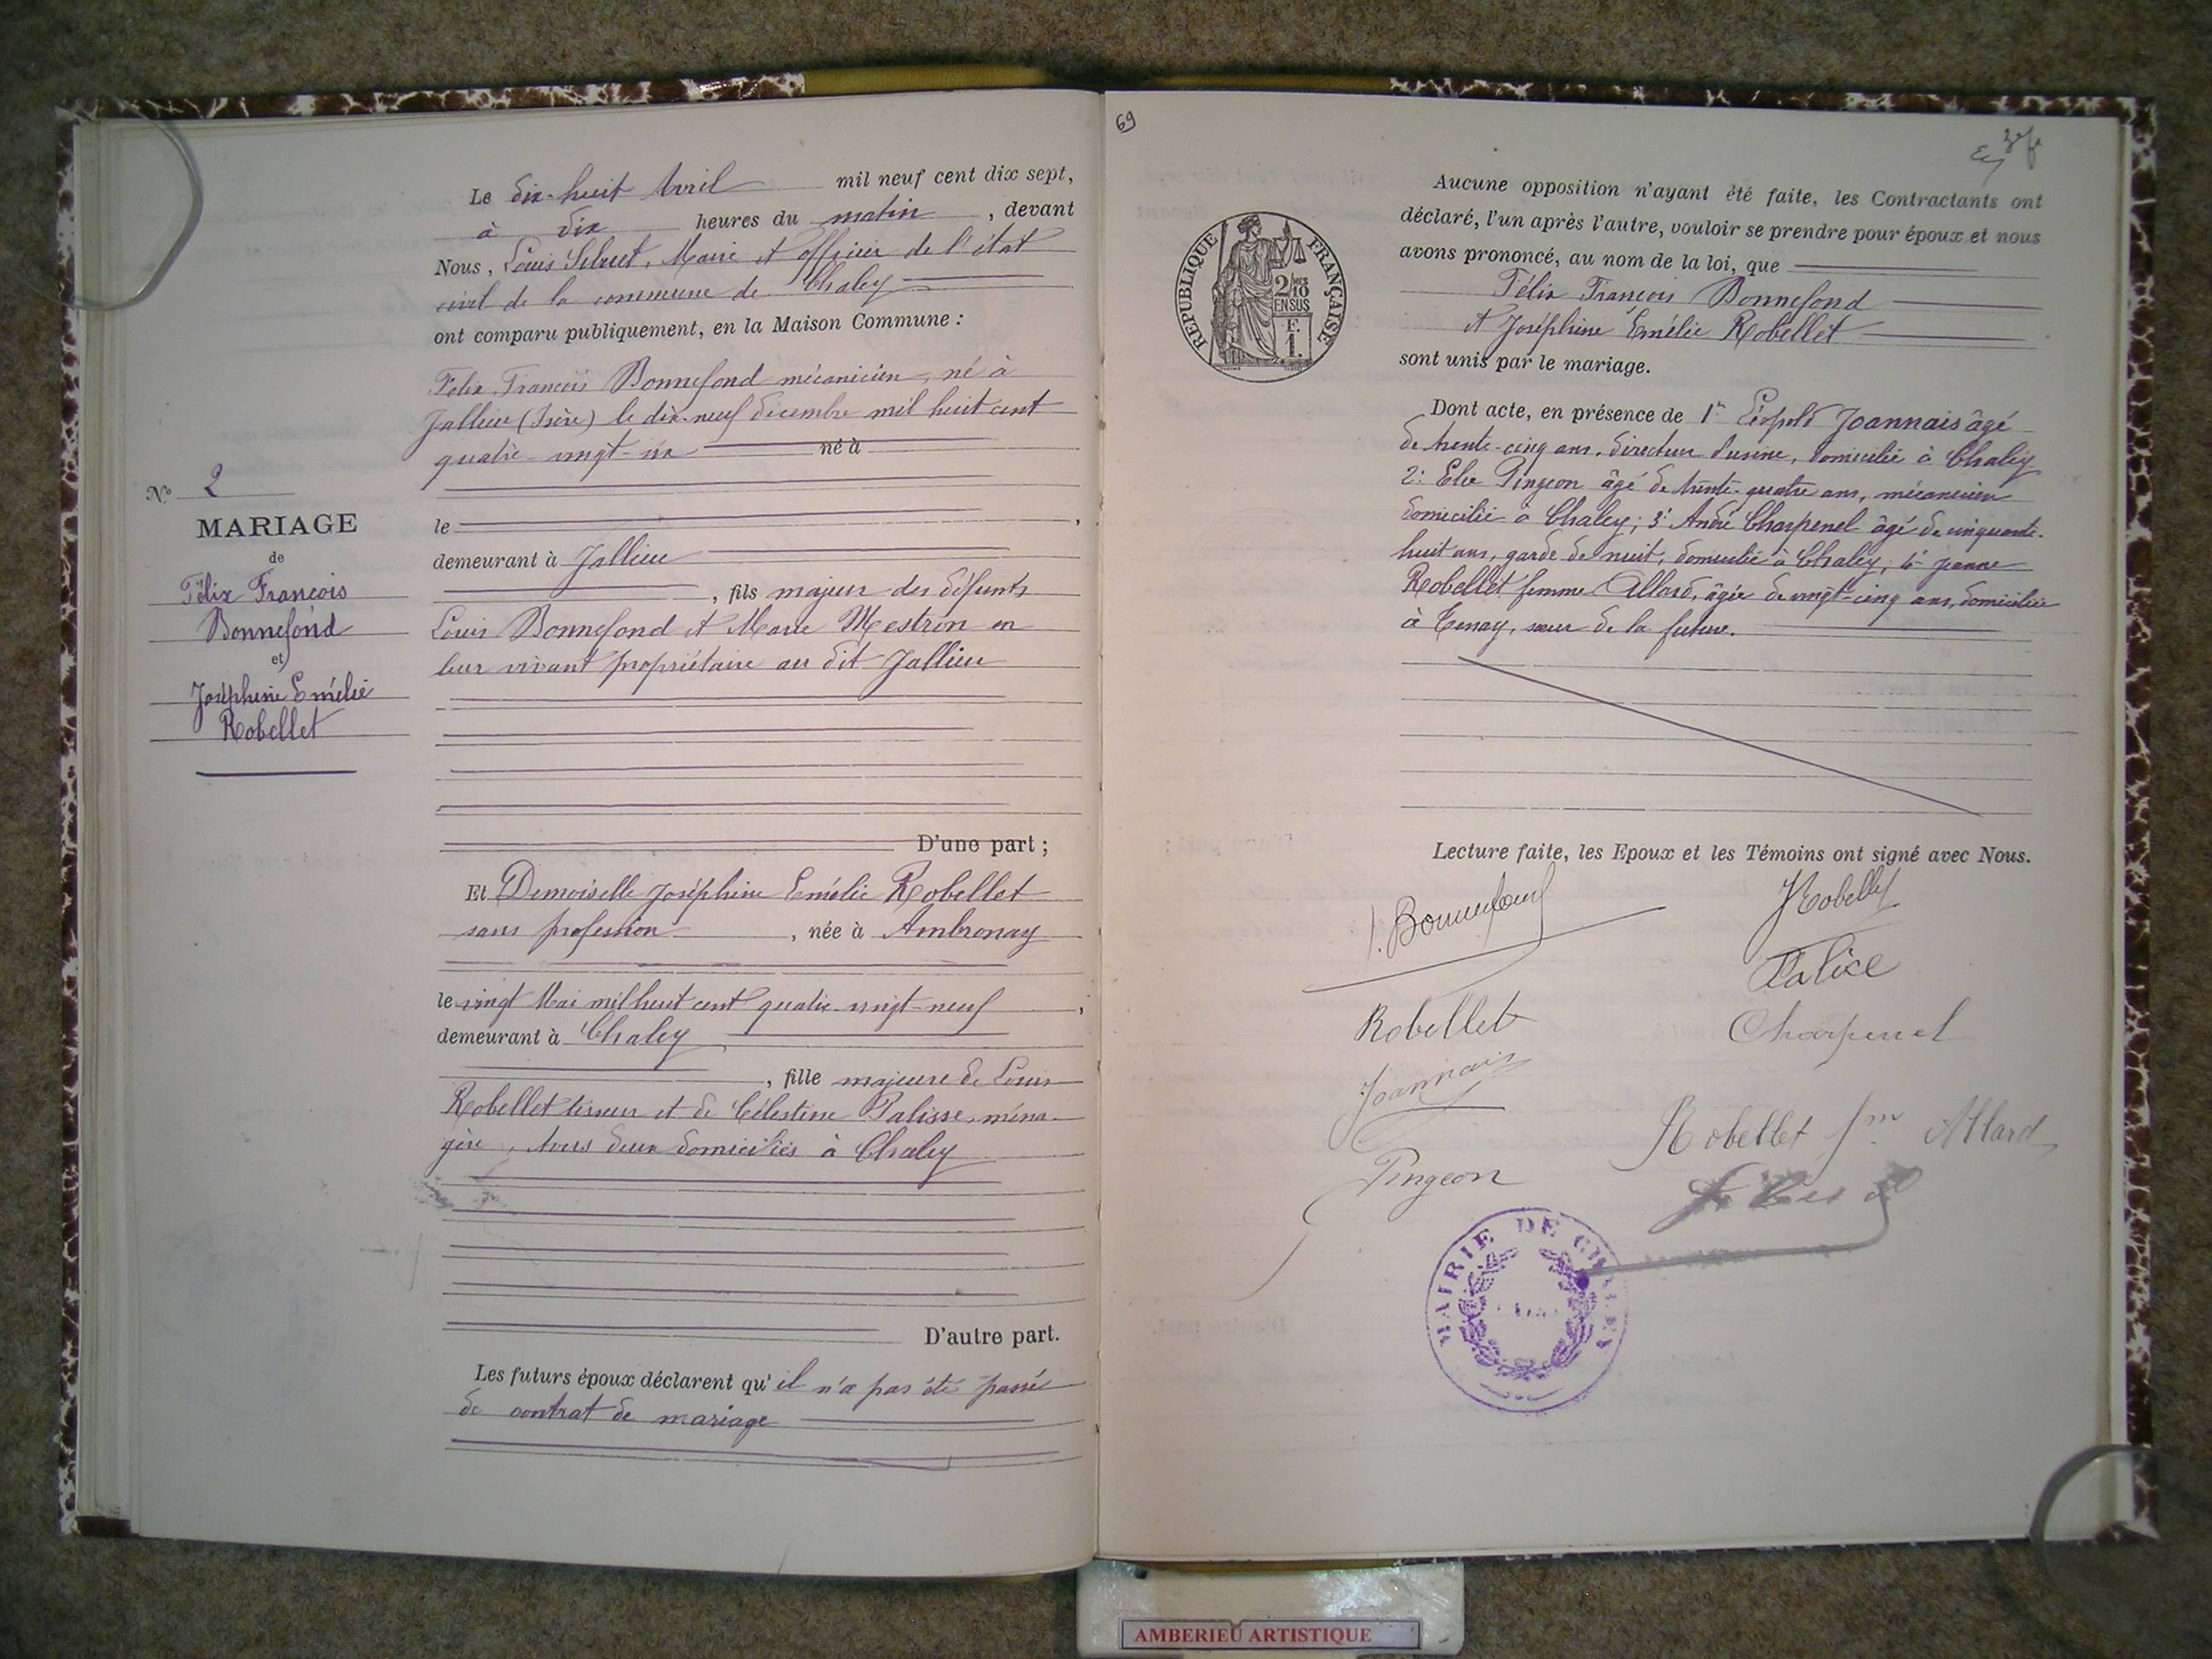 Le dix-huit Avril mil neuf cent dix sept,
à dix heures du matin, devant
Nous, Louis Maire et officier de l'état
civil de la commune de Chaley
ont comparu publiquement, en la Maison Commune :
Félix François Bonnefond mécanicien, né à
Jallieu (Isère) le dix-neuf décembre mil huit cent
quatre-vingt- né à
le ,
demeurant à Jallieu
, fils majeur des défunts
Louis Bonnefond et Marie Mestrin en
leur vivant propriétaire au dit Jallieu
D'une part ;
Et Demoiselle Joséphine Emélie Robellet
sans profession, née à Ambronay
le vingt Mai mil huit cent quatre-vingt-neuf ,
demeurant à Chaley
, fille majeure de Louis
Robellet tisseur et de Célestine Palisse, ména-
gère, tous deux domiciliés à Chaley
D'autre part.
Les futurs époux déclarent qu'il n'a pas été passé
de contrat de mariage
N° 2
MARIAGE
de
Félix François
Bonnefond
et
Joséphine Emélie
Robellet
69
Aucune opposition n'ayant été faite, les Contractants ont
déclaré, l'un après l'autre, vouloir se prendre pour époux et nous
avons prononcé, au nom de la loi, que
Félix François Bonnefond
et Joséphine Emélie Robellet
sont unis par le mariage.
Dont acte, en présence de 1° Léopold Joannais âgé
de trente-cinq ans, directeur d'usine, domicilié à Chaley
2° Elie Pingeon âgé de trente-quatre ans, mécanicien
domicilié à Chaley; 3° André Charpenel âgé de cinquante-
huit ans, garde de nuit, domicilié à Chaley; 4° Jeanne
Robellet femme Allard, âgée de vingt-cinq ans, domiciliée
à Tenay, sœur de la future.
RÉPUBLIQUE FRANÇAISE
2/10 MES
EN SUS
F.
1.
Lecture faite, les Epoux et les Témoins ont signé avec Nous.
Bonnefond
JRobellet
Palice
Robellet
Charpenel
Joannais
Robellet fm Allard
Pingeon
MAIRIE DE CHALEY
AMBERIEU ARTISTIQUE